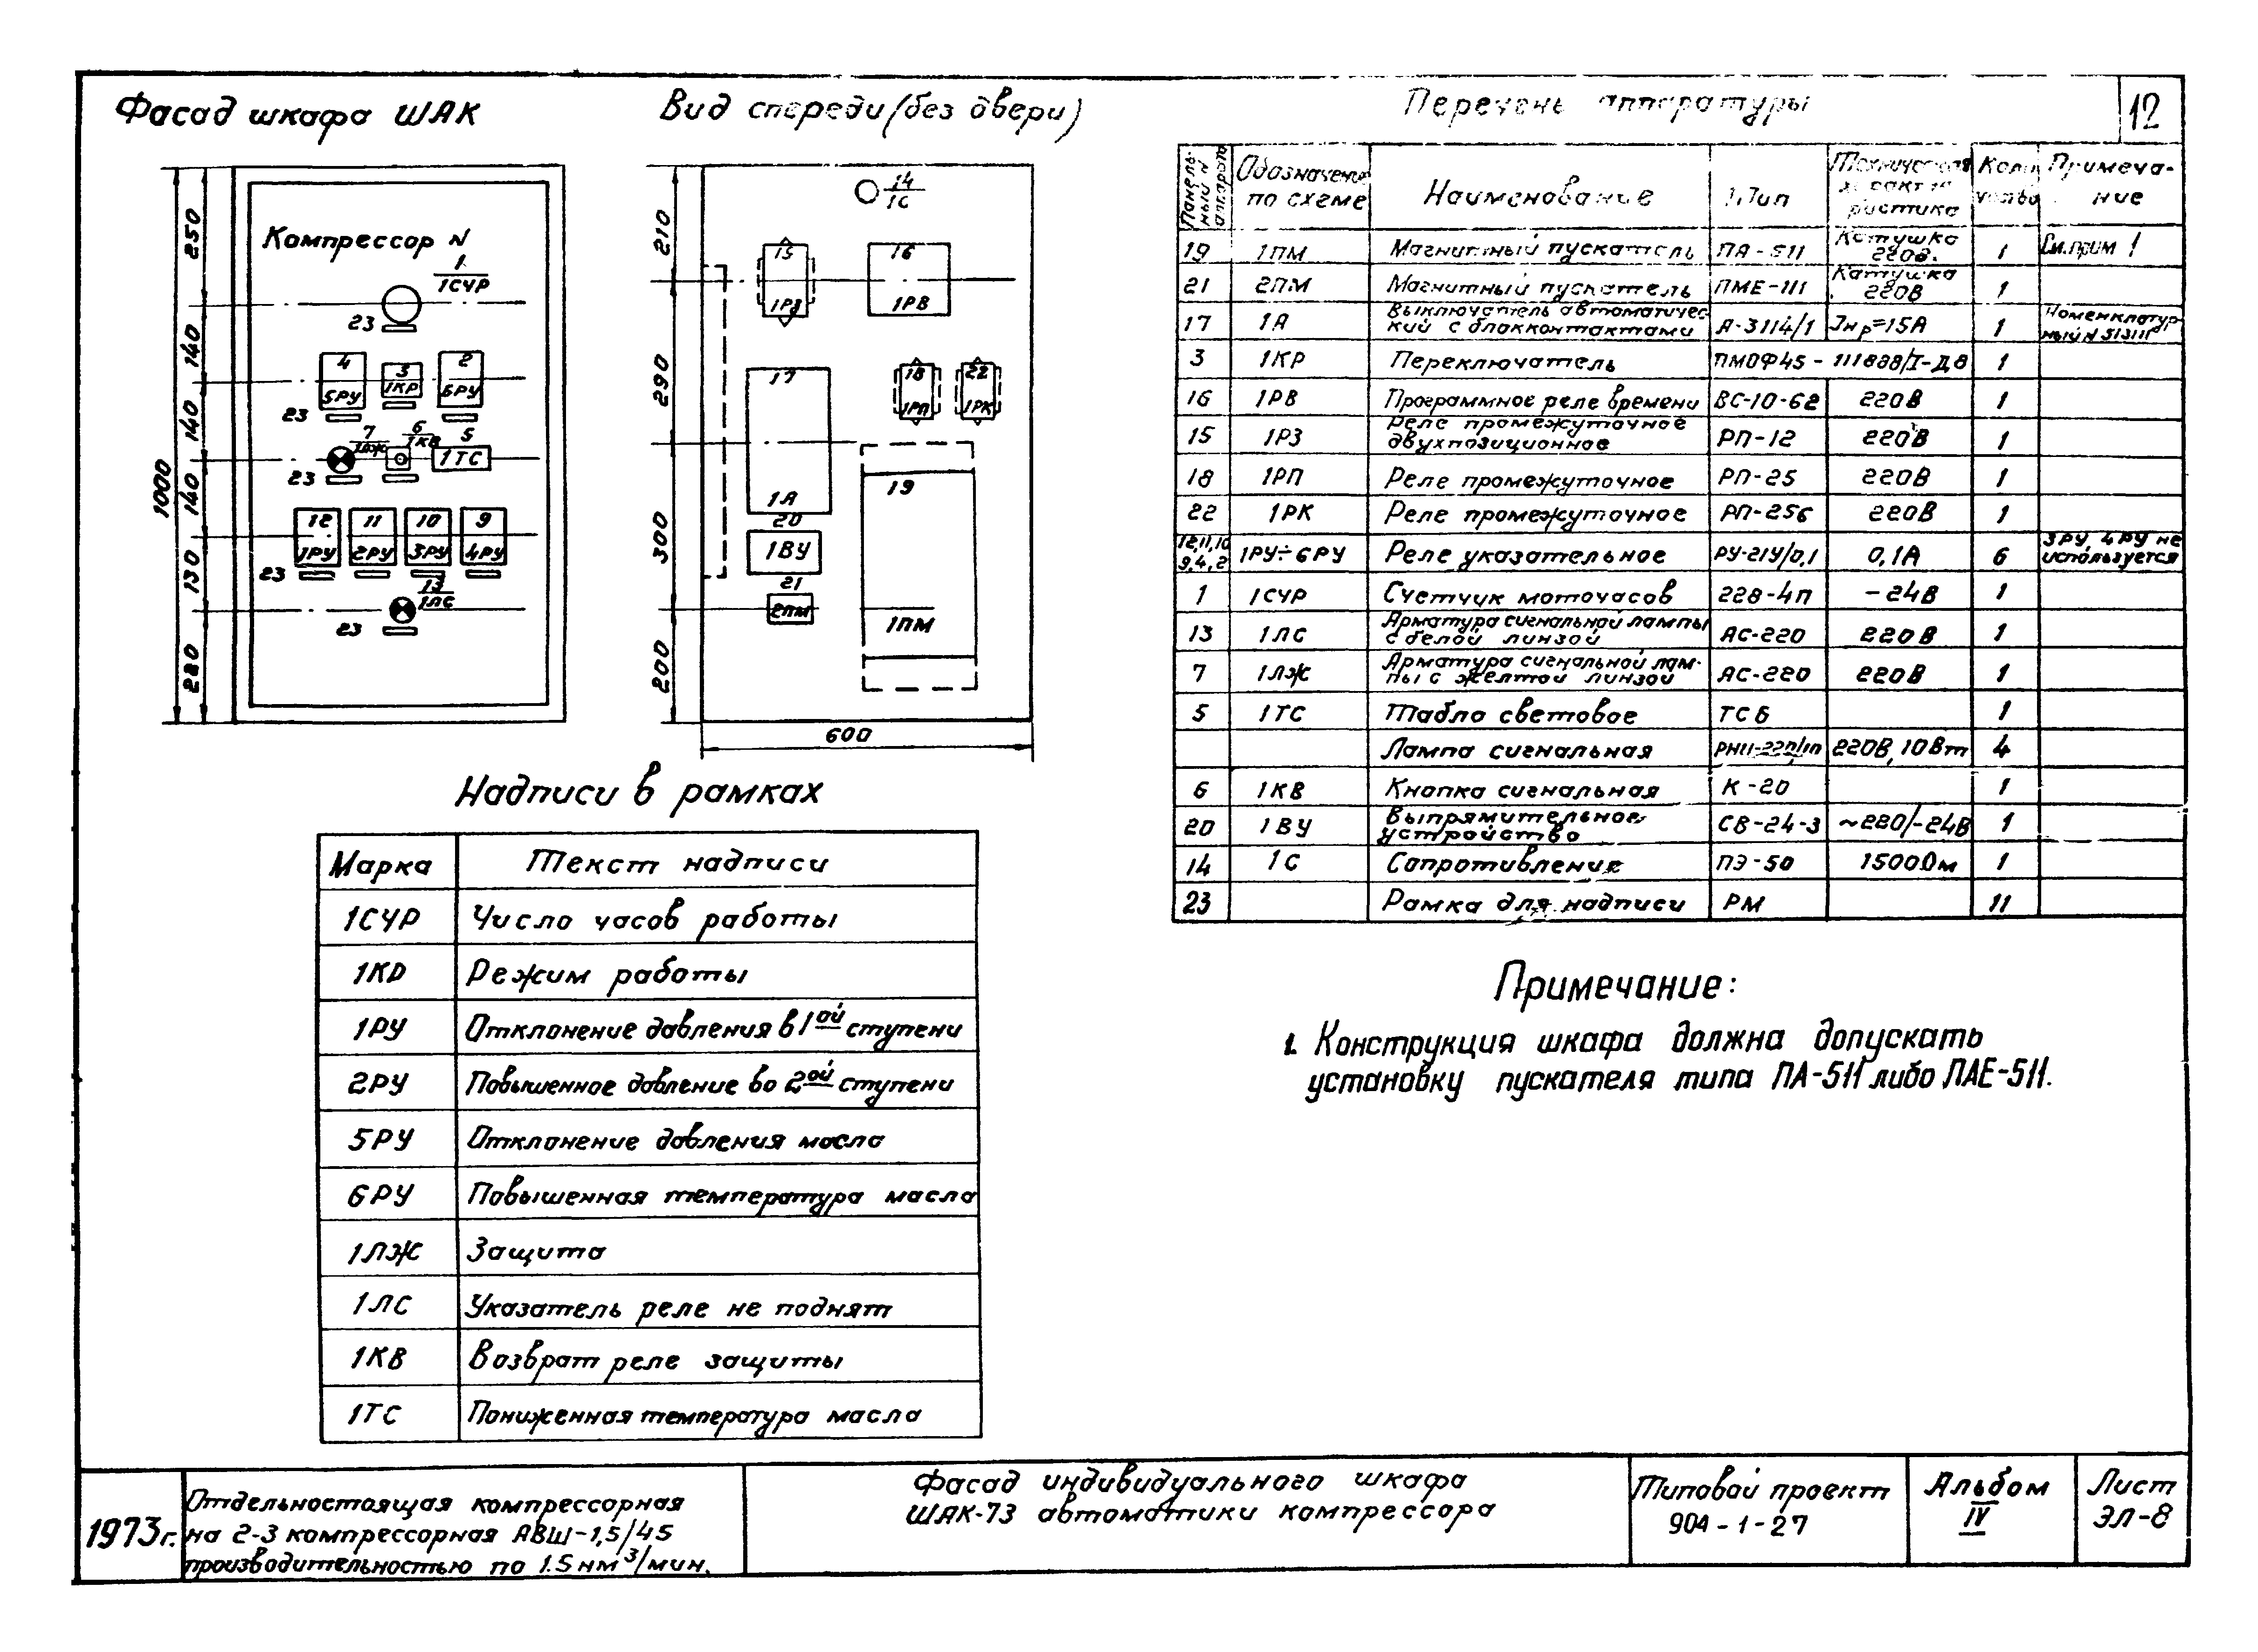 Фасад шкафа ШАК
Вид спереди (без двери)
Перечень аппаратуры
12
1000
250
140
140
140
130
220
Компрессор N
1
1СЧР
23
4
5РУ
3
1КР
2
6РУ
23
7
1ЛЖ
6
1КВ
5
1ТС
23
12
1РУ
11
2РУ
10
3РУ
9
4РУ
23
13
1ЛС
23
210
290
300
200
600
14
1С
15
1РЗ
16
1РВ
17
1А
18
1РП
22
1РК
19
1ПМ
20
1ВУ
21
2ПМ
Панель-ный N аппарата | Обозначение по схеме | Наименование | Тип | Техническая характеристика | Коли | Примеча-ние
19 1ПМ Магнитный пускатель ПА-511 Катушка 220в. 1 См.прим 1
21 2ПМ Магнитный пускатель ПМЕ-111 Катушка 220В 1
17 1А Выключатель автоматичес-кий с блакконтактами А-3114/1 Jнр=15А 1 Номенклатур-ный N 31311Г
3 1КР Переключатель ПМОФ45-111888/I-Д8 1
16 1РВ Программное реле времени ВС-10-62 220В 1
15 1РЗ Реле промежуточное двухпозиционное РП-12 220В 1
18 1РП Реле промежуточное РП-25 220В 1
22 1РК Реле промежуточное РП-256 220В 1
12,11,10 9,4,2 1РУ÷6РУ Реле указательное РУ-21У/0,1 0,1А 6 3РУ, 4РУ не используется
1 1СЧР Счетчик моточасов 228-4п -24В 1
13 1ЛС Арматура сигнальной лампы с белой линзой АС-220 220В 1
7 1ЛЖ Арматура сигнальной лам-пы с желтой линзой АС-220 220В 1
5 1ТС Табло световое ТСБ 1
Лампа сигнальная РНЦ-220/10 220В, 10Вт 4
6 1КВ Кнопка сигнальная К-20 1
20 1ВУ Выпрямительное устройство СВ-24-3 ~220/-24В 1
14 1С Сопротивление ПЭ-50 1500Ом 1
23 Рамка для надписи РМ 11
Надписи в рамках
Марка Текст надписи
1СЧР Число часов работы
1КР Режим работы
1РУ Отклонение давления в 1ой ступени
2РУ Повышенное давление во 2ой ступени
5РУ Отклонение давления масла
6РУ Повышенная температура масла
1ЛЖ Защита
1ЛС Указатель реле не поднят
1КВ Возврат реле защиты
1ТС Пониженная температура масла
Примечание:
1. Конструкция шкафа должна допускать
установку пускателя типа ПА-511 либо ПАЕ-511.
1973г.
Отдельностоящая компрессорная
на 2-3 компрессорная АВШ-1,5/45
производительностью по 1.5 нм³/мин.
Фасад индивидуального шкафа
ШАК-73 автоматики компрессора
Типовой проект
904-1-27
Альбом
IV
Лист
ЭЛ-8